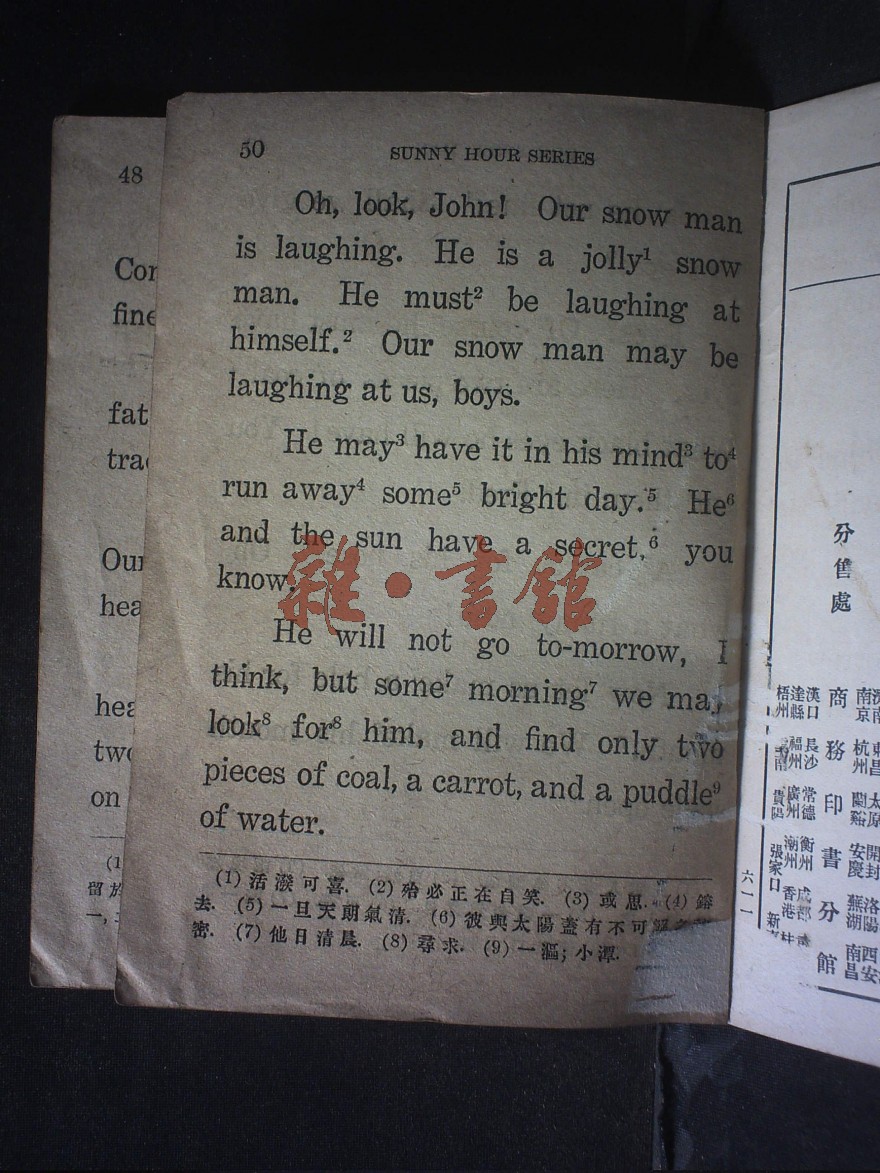 48
Cor
fine
fat
trac
Our
hea
hea
two
on
(1
留於
一,
50 SUNNY HOUR SERIES
Oh, look, John! Our snow man
is laughing. He is a jolly¹ snow
man. He must² be laughing at
himself.² Our snow man may be
laughing at us, boys.
He may³ have it in his mind³ to⁴
run away⁴ some⁵ bright day.⁵ He⁶
and the sun have a secret,⁶ you
know.
He will not go to-morrow, I
think, but some⁷ morning⁷ we may
look⁸ for⁸ him, and find only two
pieces of coal, a carrot, and a puddle⁹
of water.
(1) 活潑可喜. (2) 殆必正在自笑. (3) 或思. (4)
去. (5) 一旦天朗氣清. (6) 彼與太陽蓋有不可
密. (7) 他日清晨. (8) 尋求. (9) 一漚; 小潭.
雜·書館
分售處
商務印書分館
漢口
達縣
梧州
長沙
福州
常德
廣州
貴陽
衡州
潮州
張家口
成都
香港
南京
杭州
蘭谿
安慶
蕪湖
南昌
太原
開封
洛陽
西安
六一一